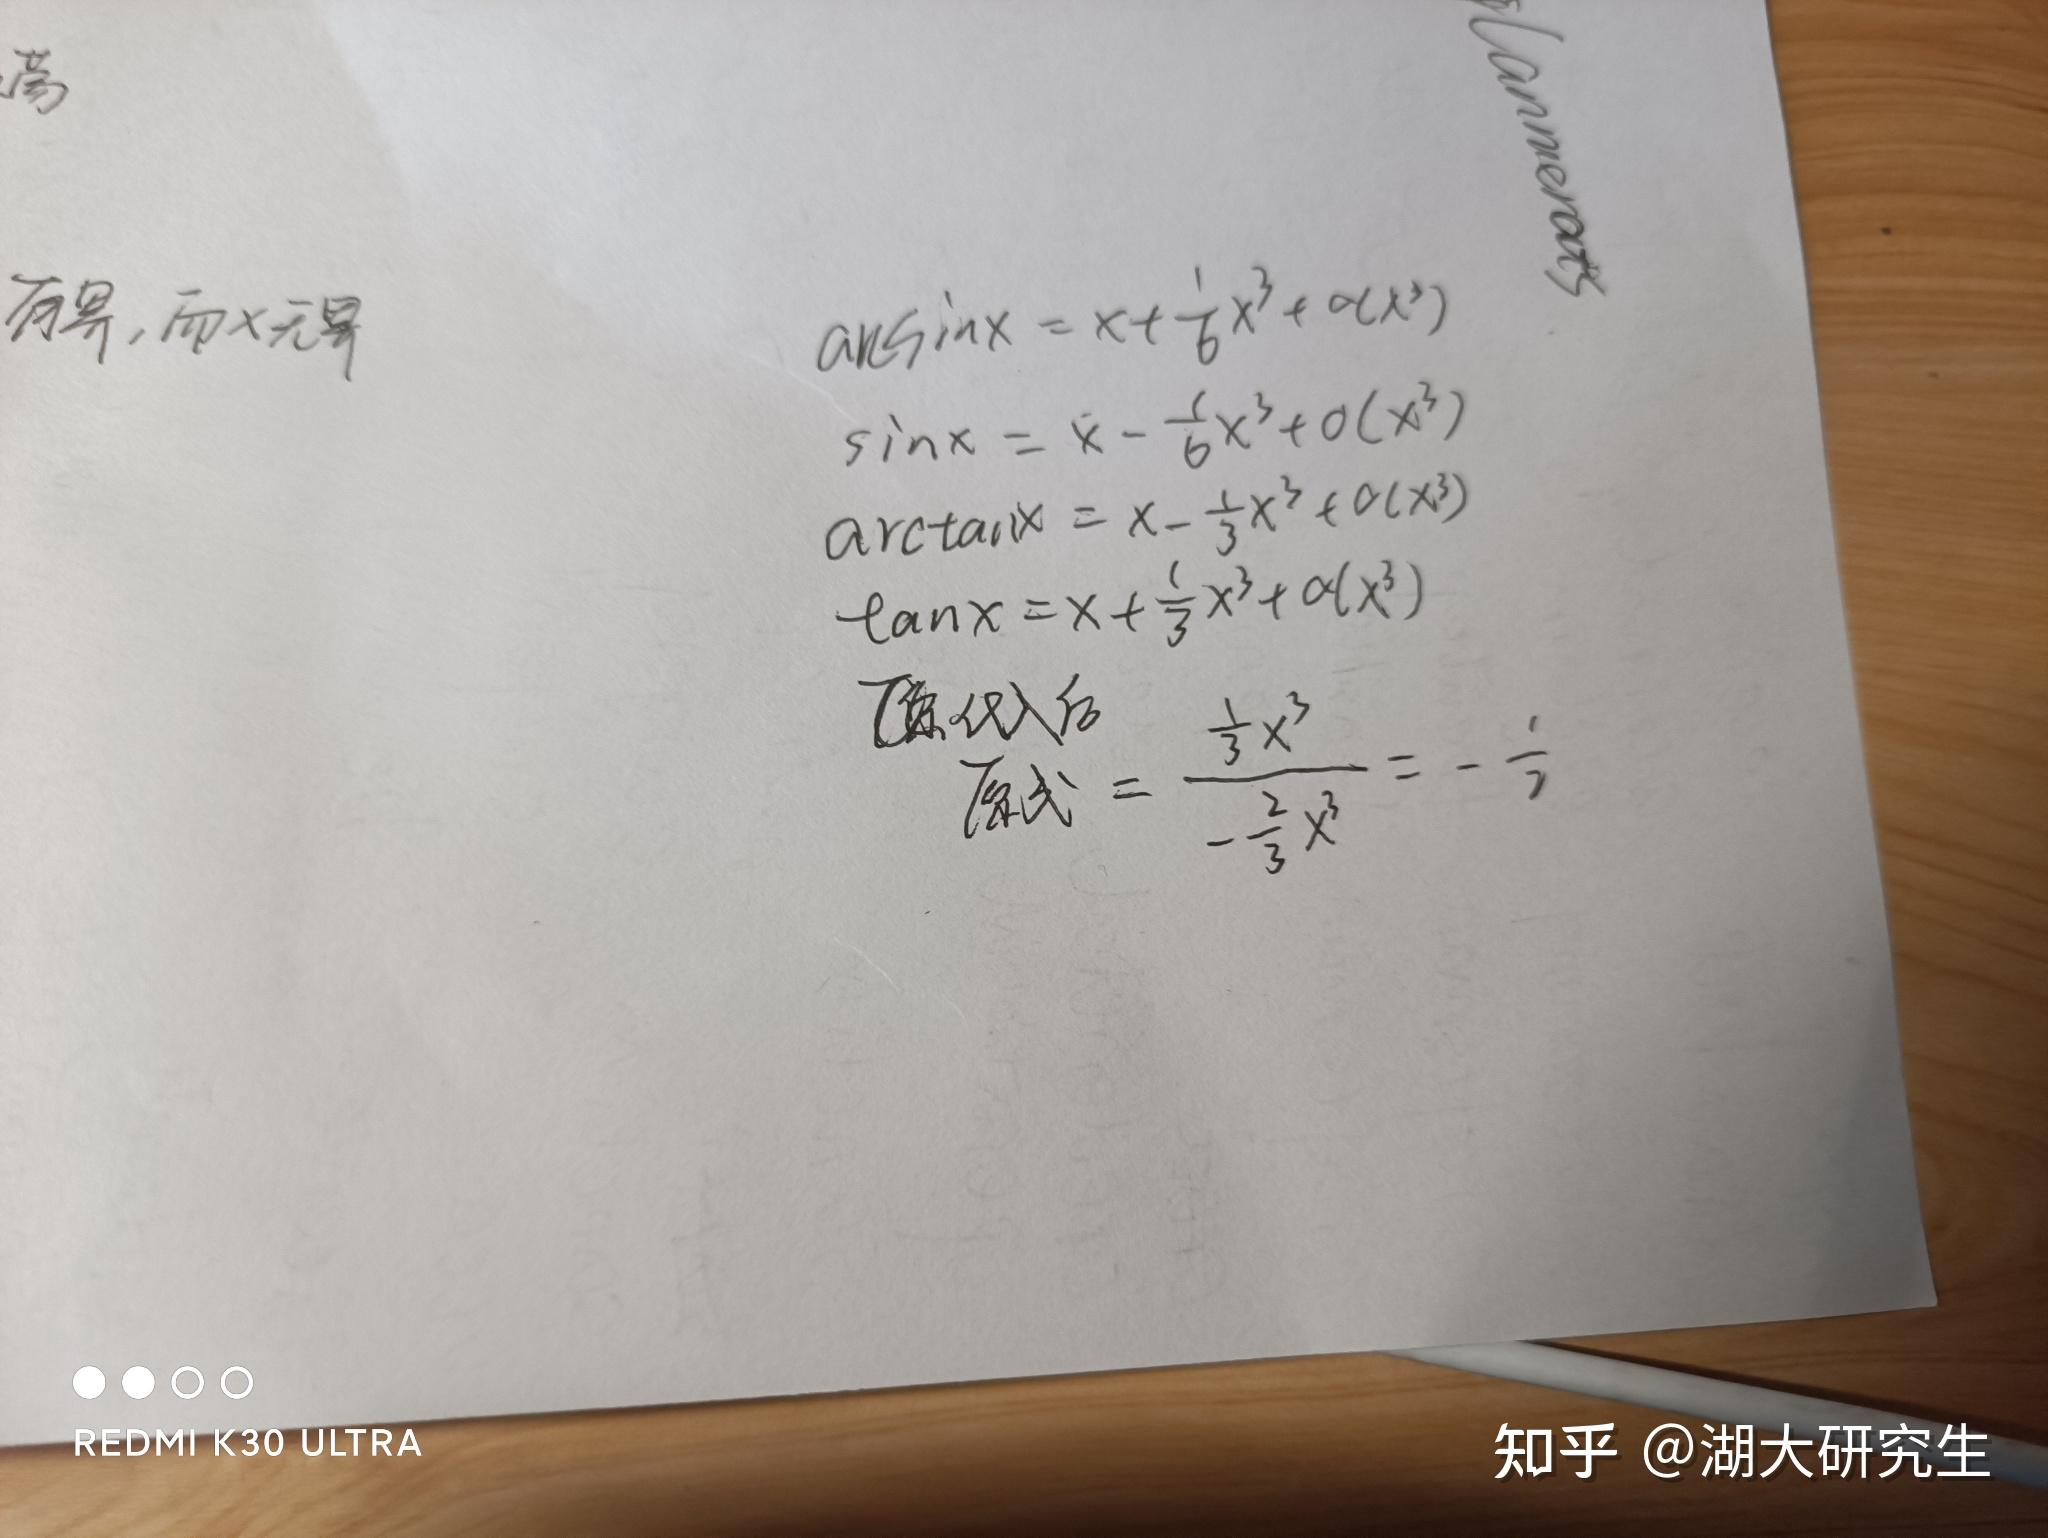 有界，而x无界
arcsinx = x + 1/6 x³ + o(x³)
sinx = x - 1/6 x³ + o(x³)
arctanx = x - 1/3 x³ + o(x³)
tanx = x + 1/3 x³ + o(x³)
代入后
原式 = (1/3 x³)/(-2/3 x³) = - 1/2
REDMI K30 ULTRA
知乎 @湖大研究生